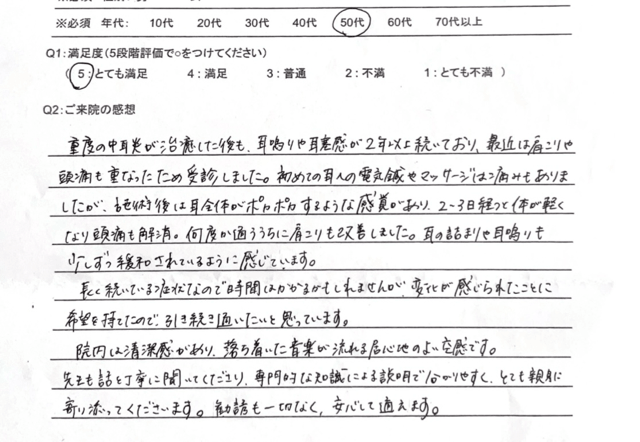 ※必須 年代: 10代 20代 30代 40代 50代 60代 70代以上
Q1:満足度(5段階評価で○をつけてください)
( 5:とても満足 4:満足 3:普通 2:不満 1:とても不満 )
Q2:ご来院の感想
重度の中耳炎が治癒した後も、耳鳴りや耳塞感が2年以上続いており、最近は肩こりや
頭痛も重なったため受診しました。初めての耳への電気鍼やマッサージは痛みもありま
したが、施術後は耳全体がポカポカするような感覚があり、2~3日経つと体が軽く
なり頭痛も解消。何度か通ううちに肩こりも改善しました。耳の詰まりや耳鳴りも
少しずつ緩和されているように感じています。
長く続いている症状なので時間はかかるかもしれませんが、変化が感じられたことに
希望を持てたので、引き続き通いたいと思っています。
院内は清潔感があり、落ち着いた音楽が流れる居心地のよい空間です。
先生も話を丁寧に聞いてくださり、専門的な知識による説明で分かりやすく、とても親身に
寄り添ってくださいます。勧誘も一切なく、安心して通えます。